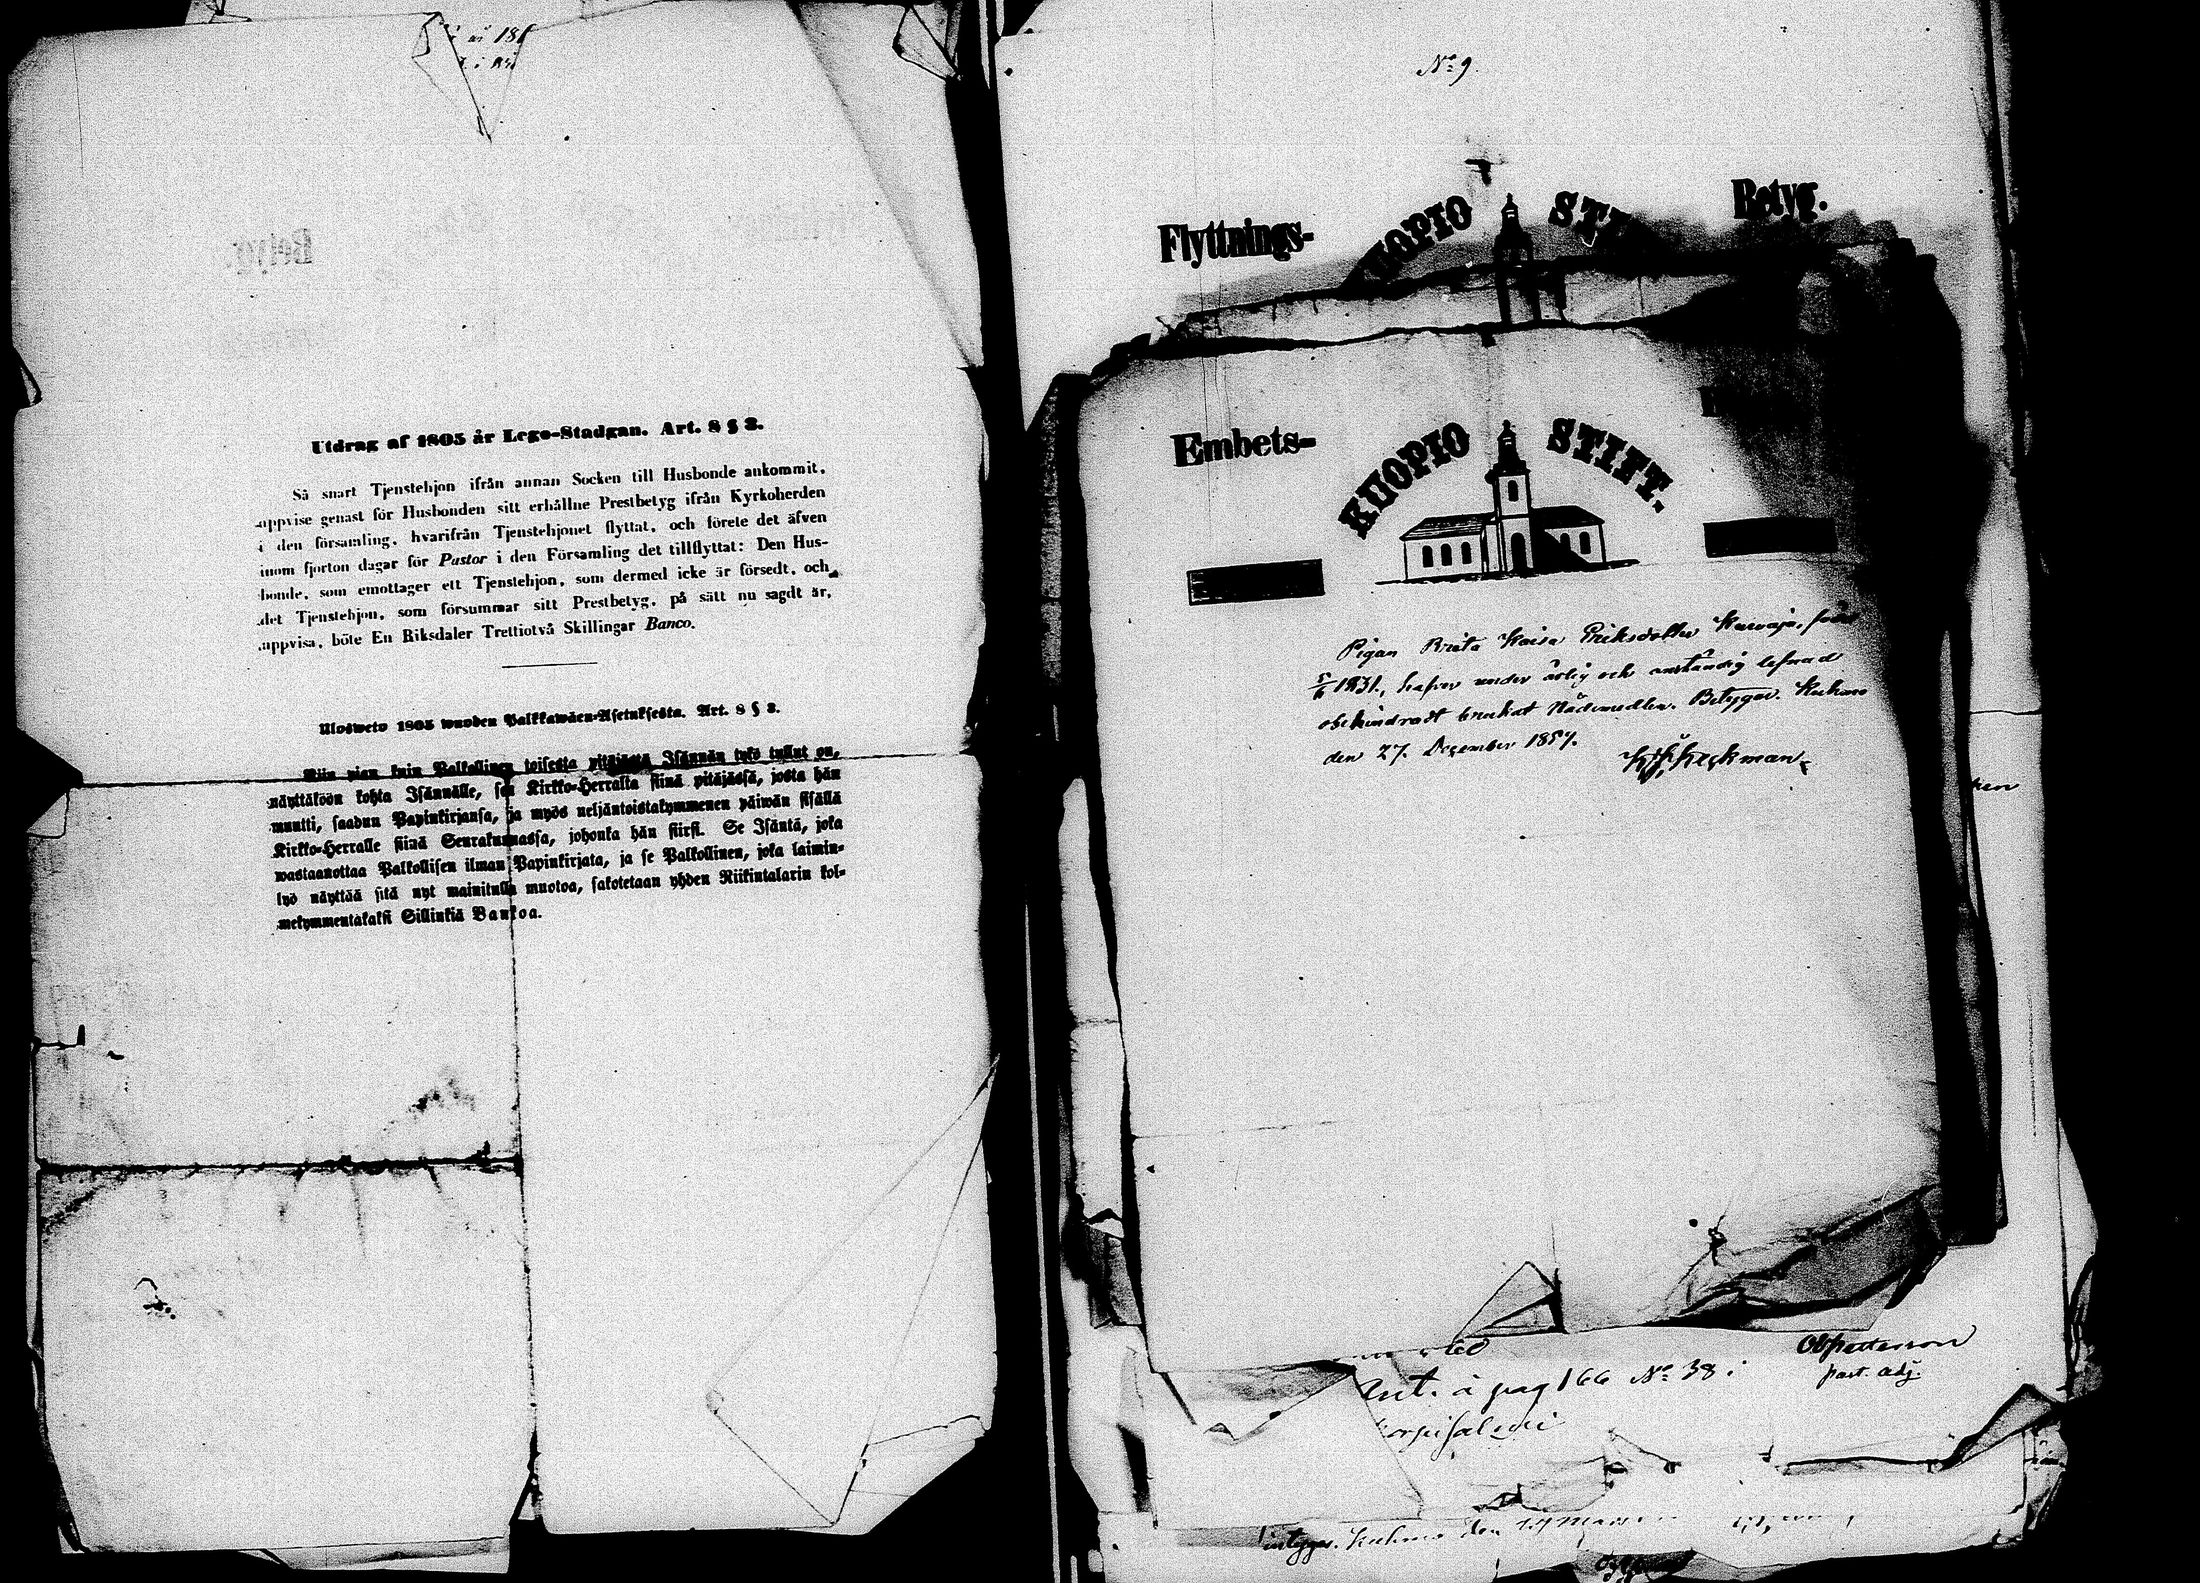 Utdrag af 1805 år Lego-Stadgan. Art. 8 § 3.
Så snart Tjenstehjon ifrån annan Socken till Husbonde ankommit,
uppvise genast för Husbonden sitt erhållne Prestbetyg ifrån Kyrkoherden
i den församling, hvarifrån Tjenstehjonet flyttat, och förete det äfven
inom fjorton dagar för Pastor i den Församling det tillflyttat: Den Hus-
bonde, som emottager ett Tjenstehjon, som dermed icke är försedt, och
det Tjenstehjon, som försummar sitt Prestbetyg, på sätt nu sagdt är,
uppvisa, böte En Riksdaler Trettiotvå Skillingar Banco.
Ulosweto 1805 wuoden Palkkawäen-Asetuksesta. Art. 8 § 3.
Niin pian kuin Palkollinen toisesta pitäjästä Isännän tykö tullut on,
näyttäköön kohta Isännälle, sen Kirkko-Herralta siinä pitäjässä, josta hän
muutti, saadun Papinkirjansa, ja myös neljäntoistakymmenen päiwän sisällä
Kirkko-Herralle siinä Seurakunnassa, johonka hän siirsi. Se Isäntä, joka
wastaanottaa Palkollisen ilman Papinkirjata, ja se Palkollinen, joka laimin-
lyö näyttää sitä nyt mainitulla muotoa, sakotetaan yhden Riikintalarin kol-
mekymmentäkaksi Sillinkiä Bankoa.
No 9.
Flyttnings- KUOPIO STI Betyg.
Embets- KUOPIO STIFT.
Pigan Brita Kaisa Eriksdotter Karvaja, född
1831, hafver under ärlig och anständig lefnad
obehindradt brukat Nådemedlen. Betygar. Kuhmo
den 27. December 1857.
Heckman
Obpetterson
past. adj.
Ant. å pag 166 No 38 i
Kuhmo den